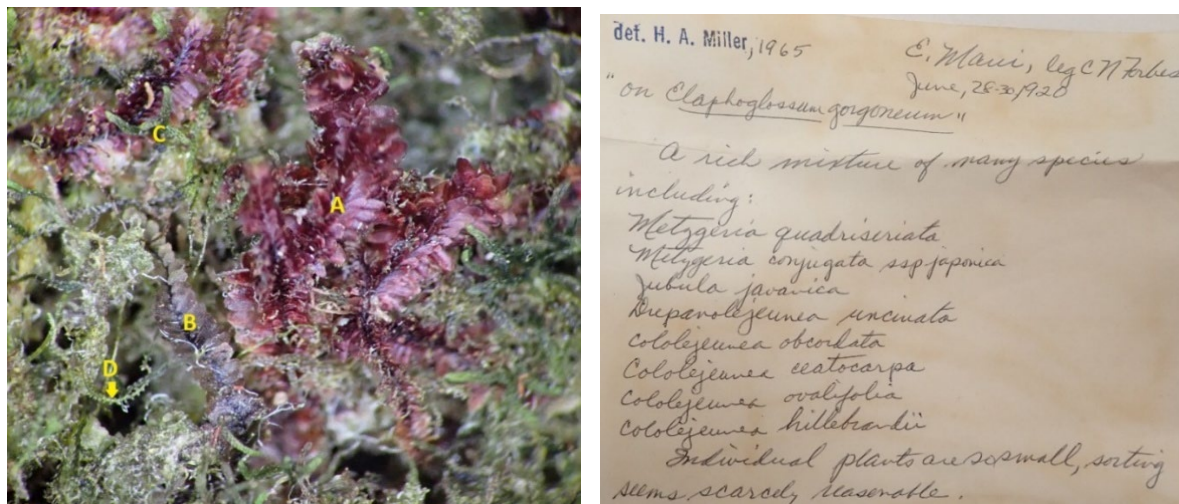 C
A
B
D
det. H. A. Miller, 1965
E. Maui, leg C N Forbes
June, 28-30, 1920
"on Elaphoglossum gorgoneum"
A rich mixture of many species
including:
Metzgeria quadriseriata
Metzgeria conjugata ssp. japonica
Jubula javanica
Drepanolejeunea uncinata
Cololejeunea obcordata
Cololejeunea ceatocarpa
Cololejeunea ovalifolia
Cololejeunea hillebrandii
Individual plants are so small, sorting
seems scarcely reasonable.